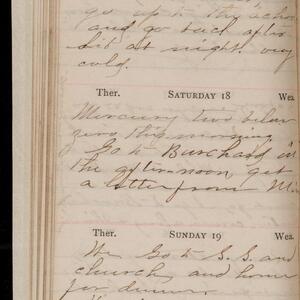 go up to the school
and go back after
at night very
cold.
Ther. SATURDAY 18 Wea.
Mercury two below
zero this morning
Go to Burchard in
the afternoon, get
a letter from
Ther. SUNDAY 19 Wea.
We Go to S. S. and
church, and home
for dinner